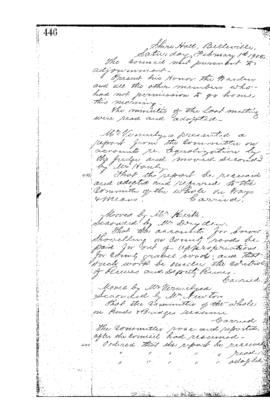 446
Shire Hall, Belleville,
Saturday February 1st
The Council met pursuant to
adjournment.
Present his Honor the Warden
and all the other members who
had not permission to go home
this morning.
The minutes of the last meeting
were read and adopted.
Mr Vermilyea presented a
report from the Committee on
accounts re Equalization by
the Judge and moved seconded
by Mr
That the report be received
and adopted and referred to the
Committee of the Whole on Ways
& Means. Carried.
Moved by Mr
Seconded by Mr
That the accounts for Snow
Shovelling on County roads be
paid for out of appropriations
for County gravel roads, and that
such work be under the control
of Reeves and Deputy Reeves.
Carried
Moved by Mr Vermilyea
Seconded by Mr Newton
That the Committee of the whole
on Roads & Bridges resume
Carried
The Committee rose and reported
after the Council had resumed.
Ordered that the report be received
" " " " read
" " " " adopted